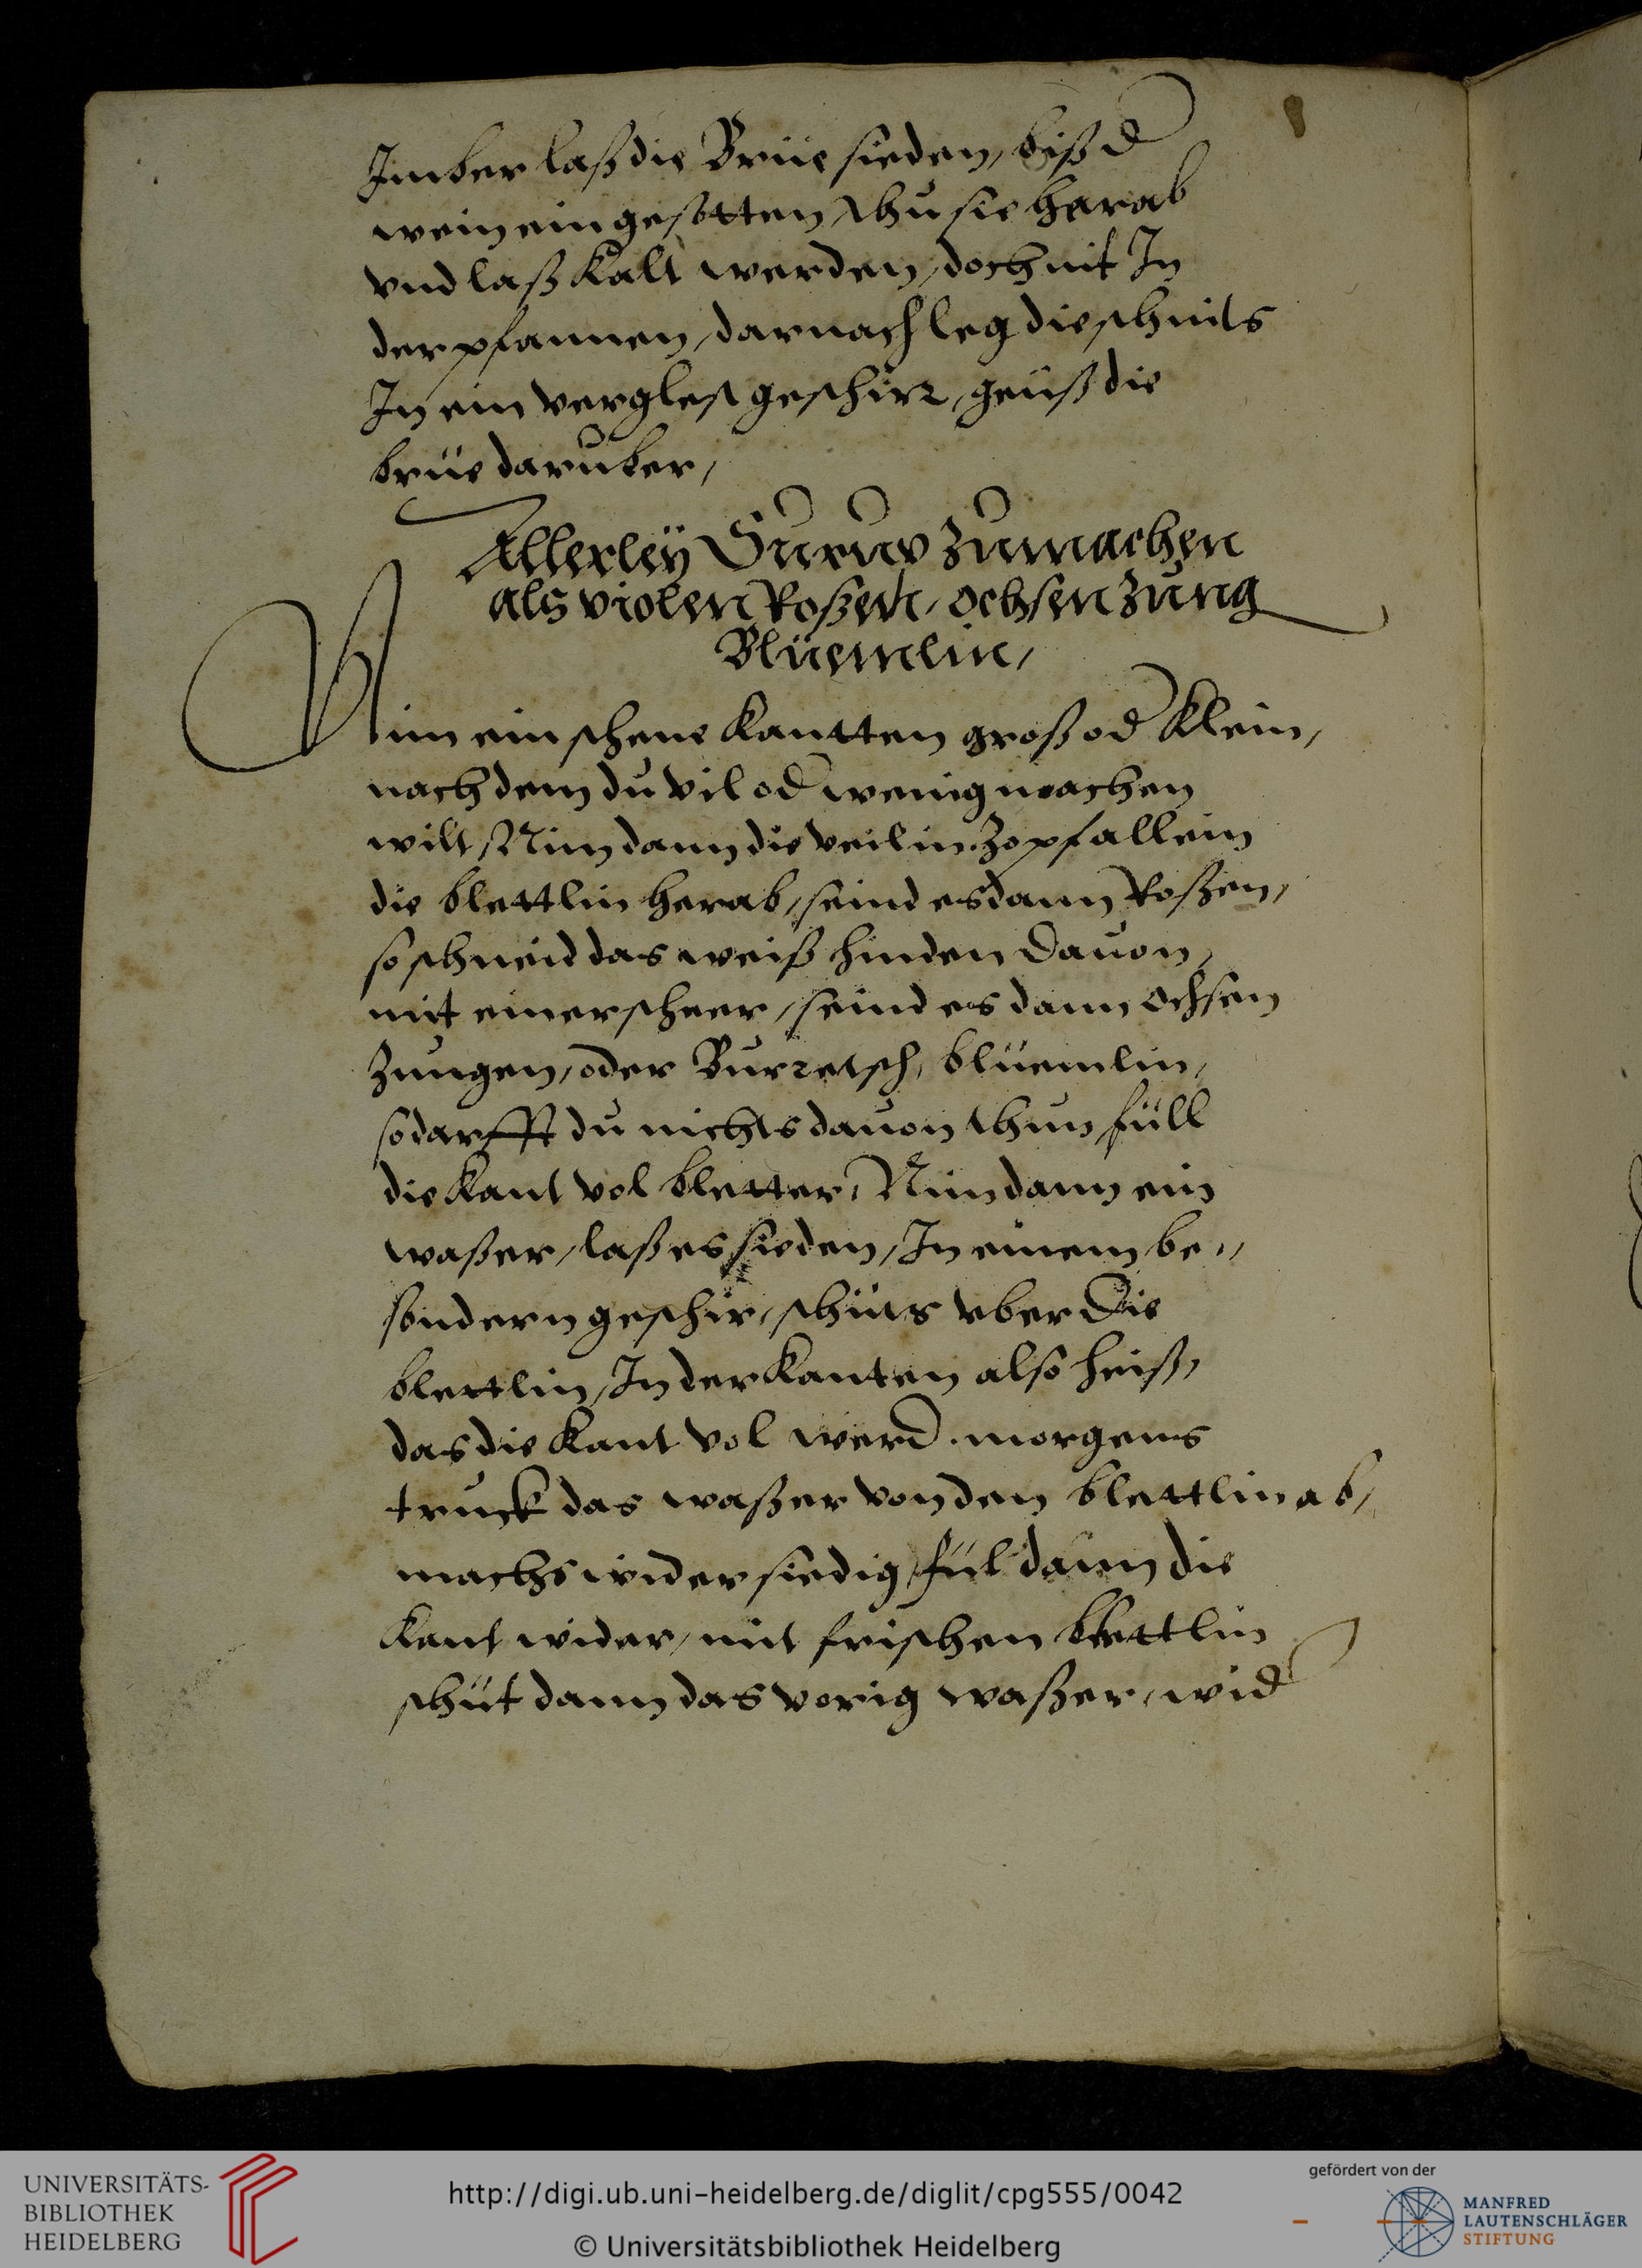 Imber laß die Brüe sieden, biß d
wein eingesotten, thu sie herab
vnd laß kalt werden, doch nit In
der pfannen, darnach leg die schnits
In ein verglest geschirr, geuß die
brüe daruber,
Allerley Surup zumachen
als violen Roßen, ochsenzung
Blüemlin,
Nim ein schene kantten groß od klein,
nach dem du vil od wenig machen
wilt, Nim dann die veilin. Zopf allein
die blettlin herab, seind es dann Roßen,
so schneid das weiß hinden dauon,
mit einer scheer, seind es dann ochsen
zungen, oder Burretsch, blüemlin,
so darfft du nichts dauon thun, füll
die kant vol bletter, Nim dann ein
waßer, laß es sieden, In einem be„
sondern geschir, schüts vber die
blettlin, In der kanten also heiß,
das die kant vol werd. morgens
truck das waßer von den blettlin ab,
machs wider siedig, fül dann die
kant wider, mit frischen blettlin
schüt dann das vorig waßer, wid
UNIVERSITÄTS-
BIBLIOTHEK
HEIDELBERG
http://digi.ub.uni-heidelberg.de/diglit/cpg555/0042
© Universitätsbibliothek Heidelberg
gefördert von der
MANFRED
LAUTENSCHLÄGER
STIFTUNG